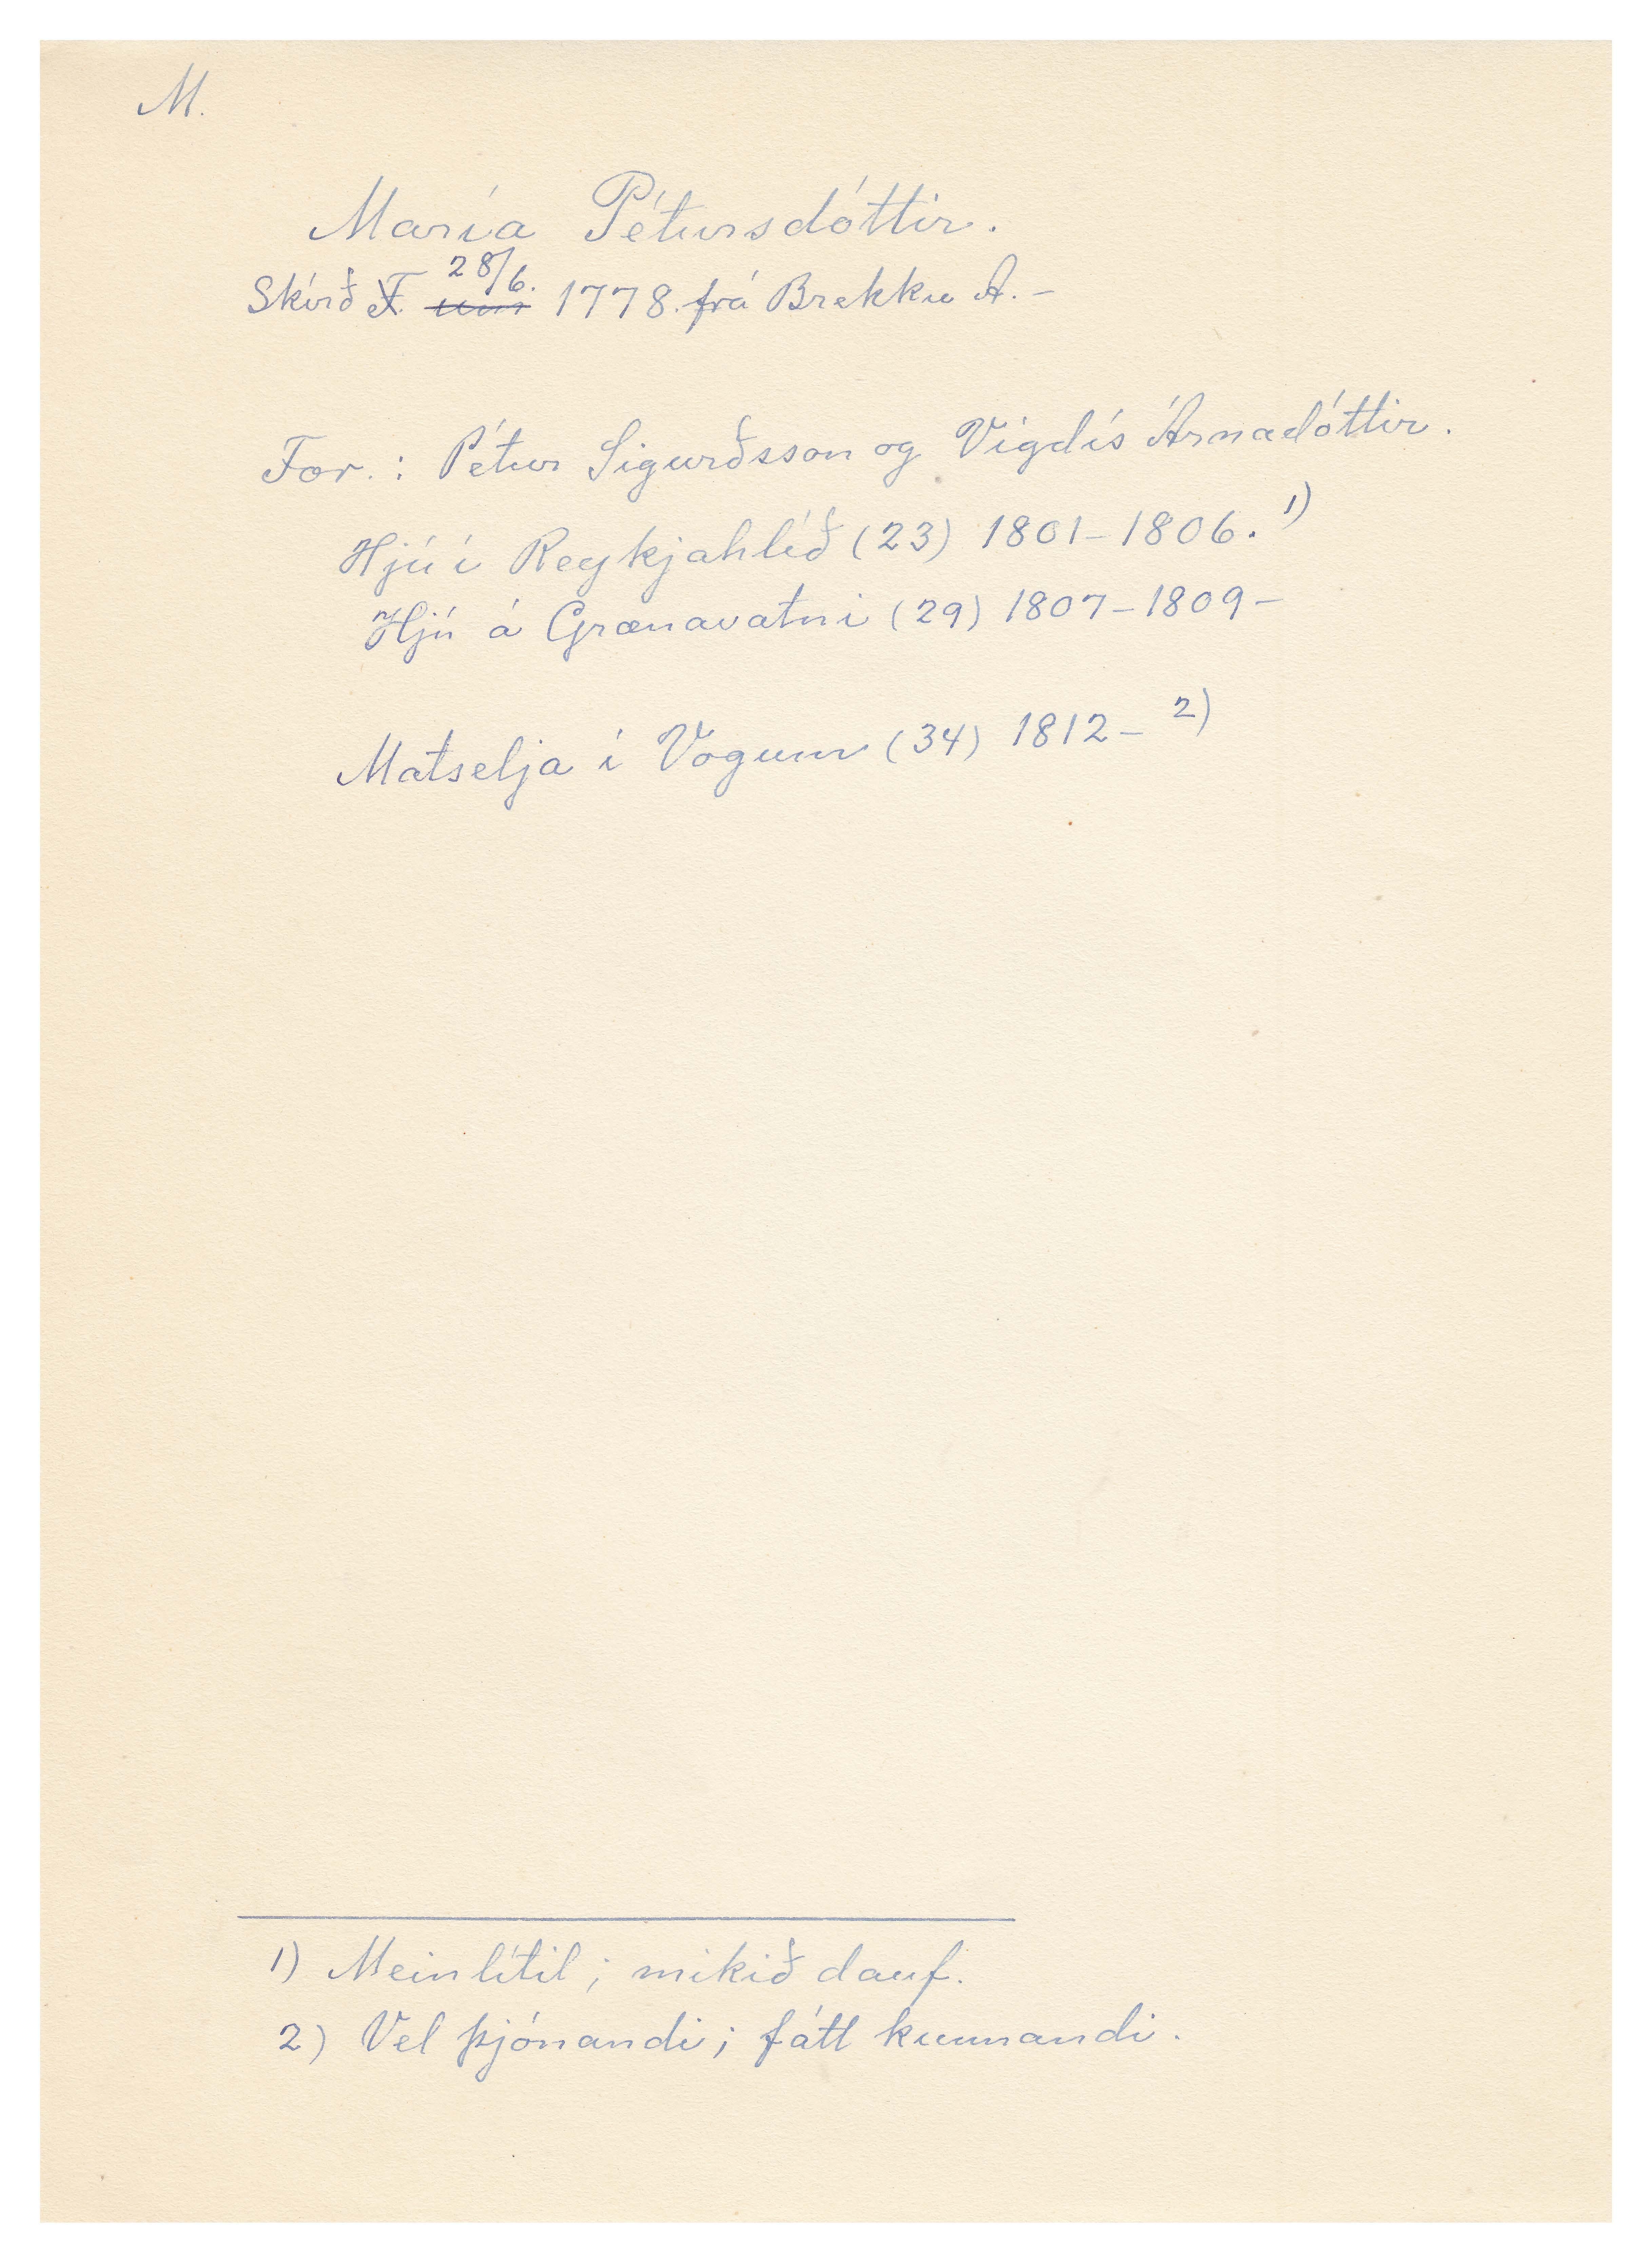 M.
María Pétursdóttir.
Skírð F. um 28/6. 1778. frá Brekku A. -
For.: Pétur Sigurðsson og Vigdís Árnadóttir.
Hjú í Reykjahlíð (23) 1801-1806. 1)
Hjú á Grænavatni (29) 1807-1809-
Matselja í Vogum (34) 1812- 2)
1) Meinlítil; mikið dauf.
2) Vel þjónandi; fátt kunnandi.